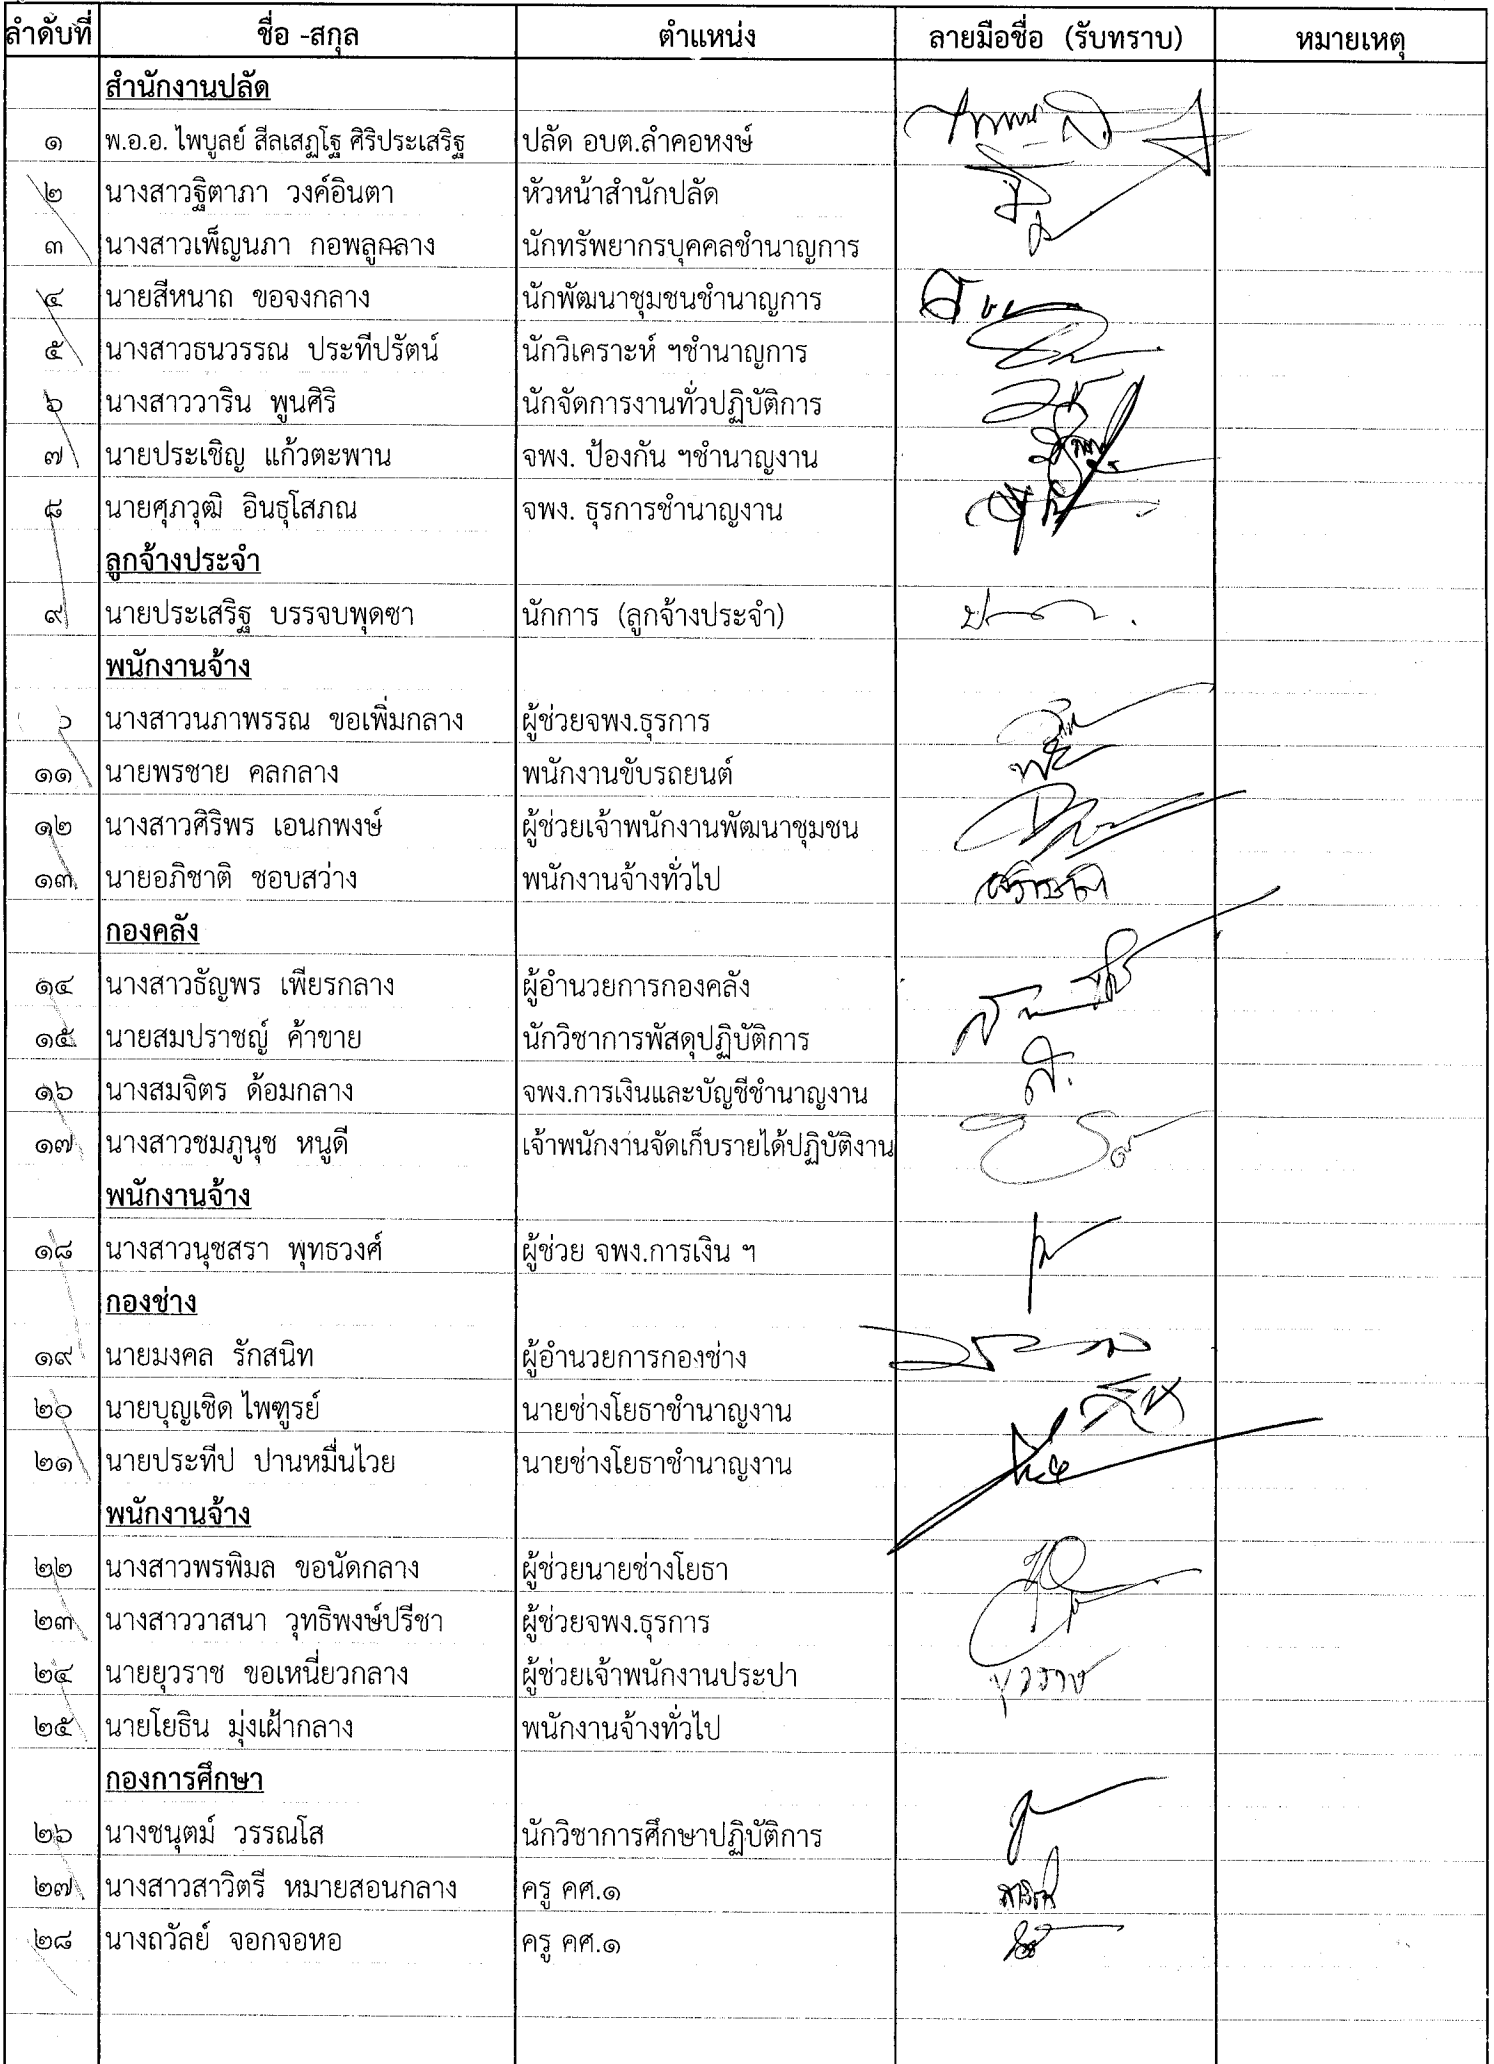 ลำดับที่ ชื่อ -สกุล ตำแหน่ง ลายมือชื่อ (รับทราบ) หมายเหตุ
สำนักงานปลัด
๑ พ.อ.อ. ไพบูลย์ สีลเสฏโฐ ศิริประเสริฐ ปลัด อบต.ลำคอหงษ์
๒ นางสาวฐิตาภา วงค์อินตา หัวหน้าสำนักปลัด
๓ นางสาวเพ็ญนภา กอพลูกลาง นักทรัพยากรบุคคลชำนาญการ
๔ นายสีหนาถ ขอจงกลาง นักพัฒนาชุมชนชำนาญการ
๕ นางสาวธนวรรณ ประทีปรัตน์ นักวิเคราะห์ ฯชำนาญการ
๖ นางสาววาริน พูนศิริ นักจัดการงานทั่วปฏิบัติการ
๗ นายประเชิญ แก้วตะพาน จพง. ป้องกัน ฯชำนาญงาน
๘ นายศุภวุฒิ อินธุโสภณ จพง. ธุรการชำนาญงาน
ลูกจ้างประจำ
๙ นายประเสริฐ บรรจบพุดซา นักการ (ลูกจ้างประจำ)
พนักงานจ้าง
นางสาวนภาพรรณ ขอเพิ่มกลาง ผู้ช่วยจพง.ธุรการ
๑๑ นายพรชาย คลกลาง พนักงานขับรถยนต์
๑๒ นางสาวศิริพร เอนกพงษ์ ผู้ช่วยเจ้าพนักงานพัฒนาชุมชน
๑๓ นายอภิชาติ ชอบสว่าง พนักงานจ้างทั่วไป
กองคลัง
๑๔ นางสาวธัญพร เพียรกลาง ผู้อำนวยการกองคลัง
๑๕ นายสมปราชญ์ ค้าขาย นักวิชาการพัสดุปฏิบัติการ
๑๖ นางสมจิตร ด้อมกลาง จพง.การเงินและบัญชีชำนาญงาน
๑๗ นางสาวชมภูนุช หนูดี เจ้าพนักงานจัดเก็บรายได้ปฏิบัติงาน
พนักงานจ้าง
๑๘ นางสาวนุชสรา พุทธวงศ์ ผู้ช่วย จพง.การเงิน ฯ
กองช่าง
๑๙ นายมงคล รักสนิท ผู้อำนวยการกองช่าง
๒๐ นายบุญเชิด ไพฑูรย์ นายช่างโยธาชำนาญงาน
๒๑ นายประทีป ปานหมื่นไวย นายช่างโยธาชำนาญงาน
พนักงานจ้าง
๒๒ นางสาวพรพิมล ขอนัดกลาง ผู้ช่วยนายช่างโยธา
๒๓ นางสาววาสนา วุทธิพงษ์ปรีชา ผู้ช่วยจพง.ธุรการ
๒๔ นายยุวราช ขอเหนี่ยวกลาง ผู้ช่วยเจ้าพนักงานประปา ยุวราช
๒๕ นายโยธิน มุ่งเฝ้ากลาง พนักงานจ้างทั่วไป
กองการศึกษา
๒๖ นางชนุตม์ วรรณโส นักวิชาการศึกษาปฏิบัติการ
๒๗ นางสาวสาวิตรี หมายสอนกลาง ครู คศ.๑
๒๘ นางถวัลย์ จอกจอหอ ครู คศ.๑